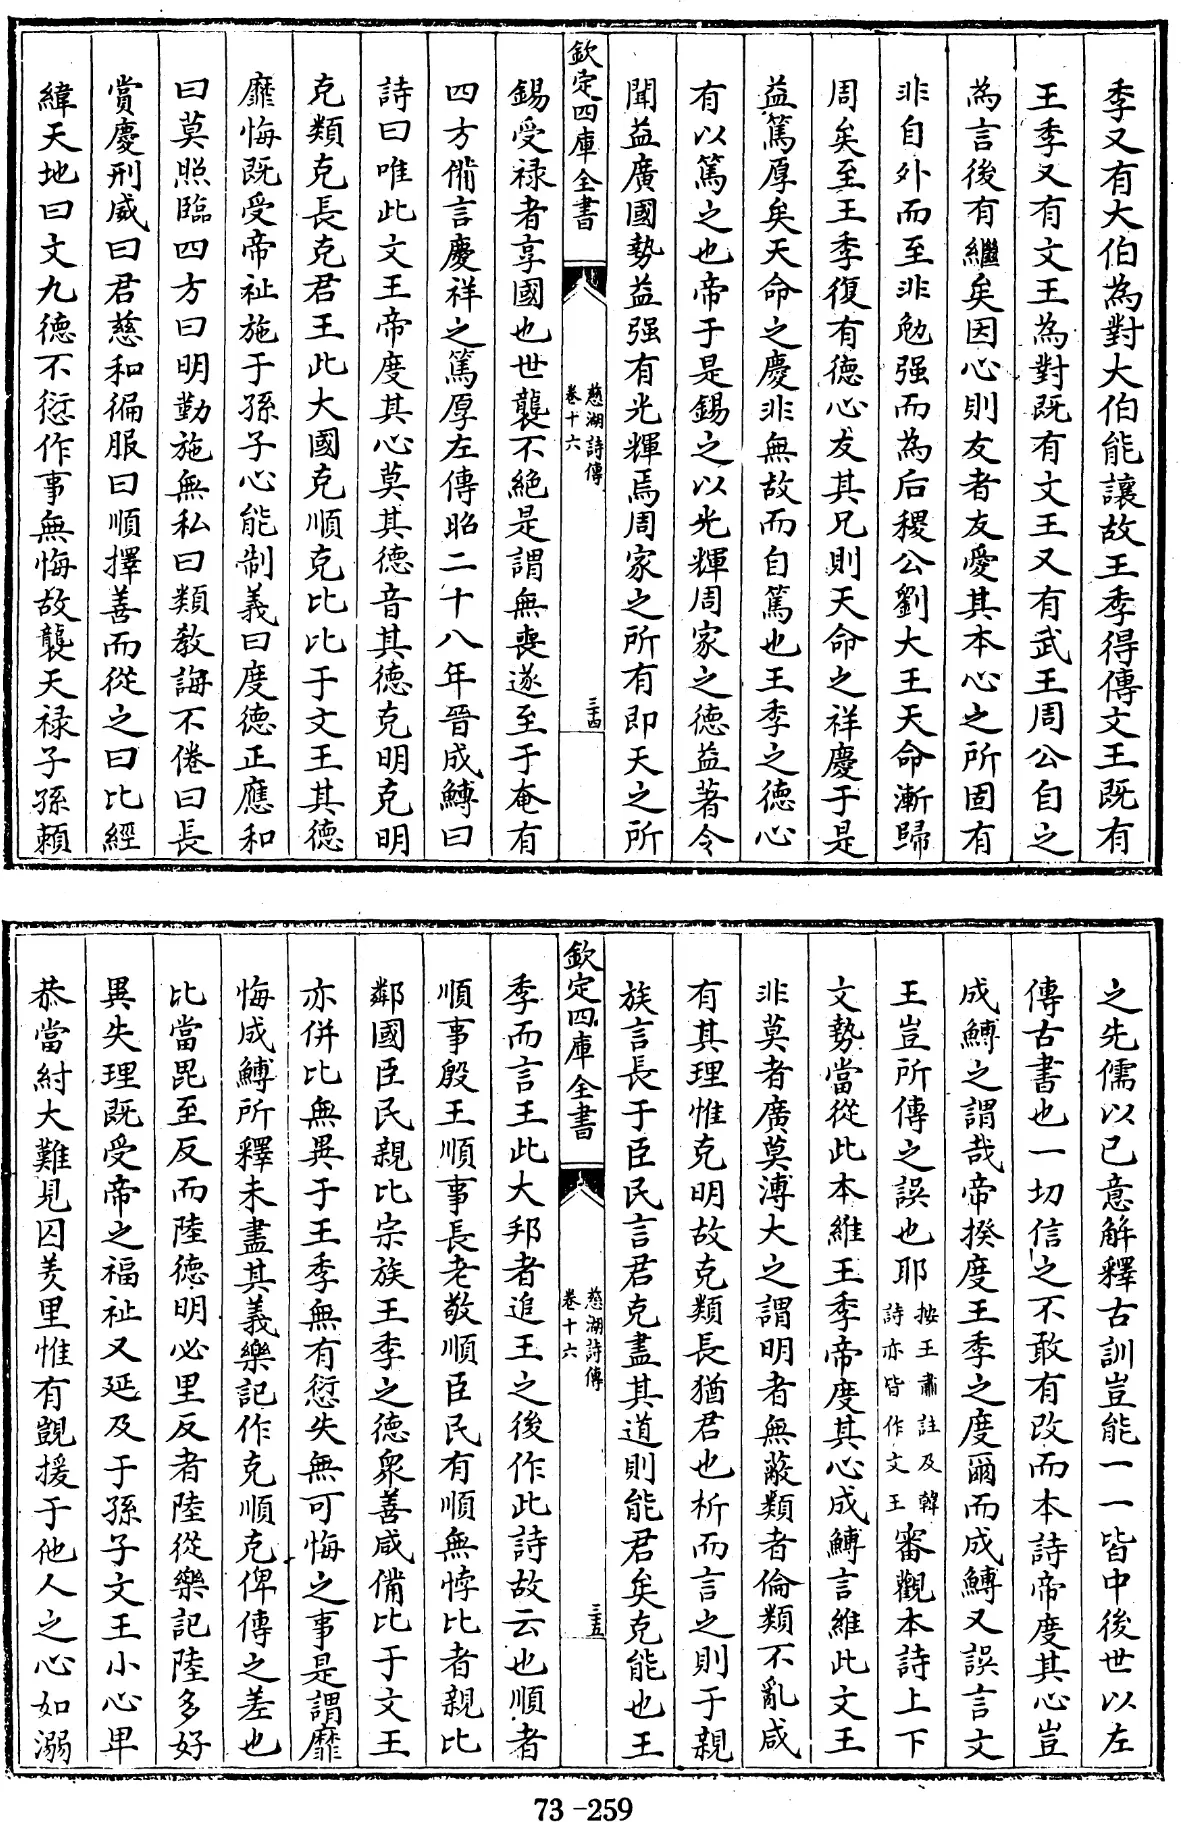 季又有大伯為對大伯能讓故王季得傳文王既有
王季又有文王為對既有文王又有武王周公自之
為言後有繼矣因心則友者友愛其本心之所固有
非自外而至非勉强而為后稷公劉大王天命漸歸
周矣至王季復有德心友其兄則天命之祥慶于是
益篤厚矣天命之慶非無故而自篤也王季之德心
有以篤之也帝于是錫之以光輝周家之德益著令
聞益廣國勢益强有光輝焉周家之所有即天之所
欽定四庫全書
慈湖詩傳
卷十六
三十四
錫受禄者享國也世襲不絶是謂無喪遂至于奄有
四方備言慶祥之篤厚左傳昭二十八年晉成鱄曰
詩曰唯此文王帝度其心莫其德音其德克明克明
克類克長克君王此大國克順克比比于文王其德
靡悔既受帝祉施于孫子心能制義曰度德正應和
曰莫照臨四方曰明勤施無私曰類教誨不倦曰長
賞慶刑威曰君慈和徧服曰順擇善而從之曰比經
緯天地曰文九德不愆作事無悔故襲天禄子孫賴
之先儒以已意解釋古訓豈能一一皆中後世以左
傳古書也一切信之不敢有改而本詩帝度其心豈
成鱄之謂哉帝揆度王季之度爾而成鱄又誤言文
王豈所傳之誤也耶按王肅註及韓詩亦皆作文王審觀本詩上下
文勢當從此本維王季帝度其心成鱄言維此文王
非莫者廣莫溥大之謂明者無蔽類者倫類不亂咸
有其理惟克明故克類長猶君也析而言之則于親
族言長于臣民言君克盡其道則能君矣克能也王
欽定四庫全書
慈湖詩傳
卷十六
三十五
季而言王此大邦者追王之後作此詩故云也順者
順事殷王順事長老敬順臣民有順無悖比者親比
鄰國臣民親比宗族王季之德衆善咸備比于文王
亦併比無異于王季無有愆失無可悔之事是謂靡
悔成鱄所釋未盡其義樂記作克順克俾傳之差也
比當毘至反而陸德明必里反者陸從樂記陸多好
異失理既受帝之福祉又延及于孫子文王小心畢
恭當紂大難見囚羑里惟有覬援于他人之心如溺
73-259